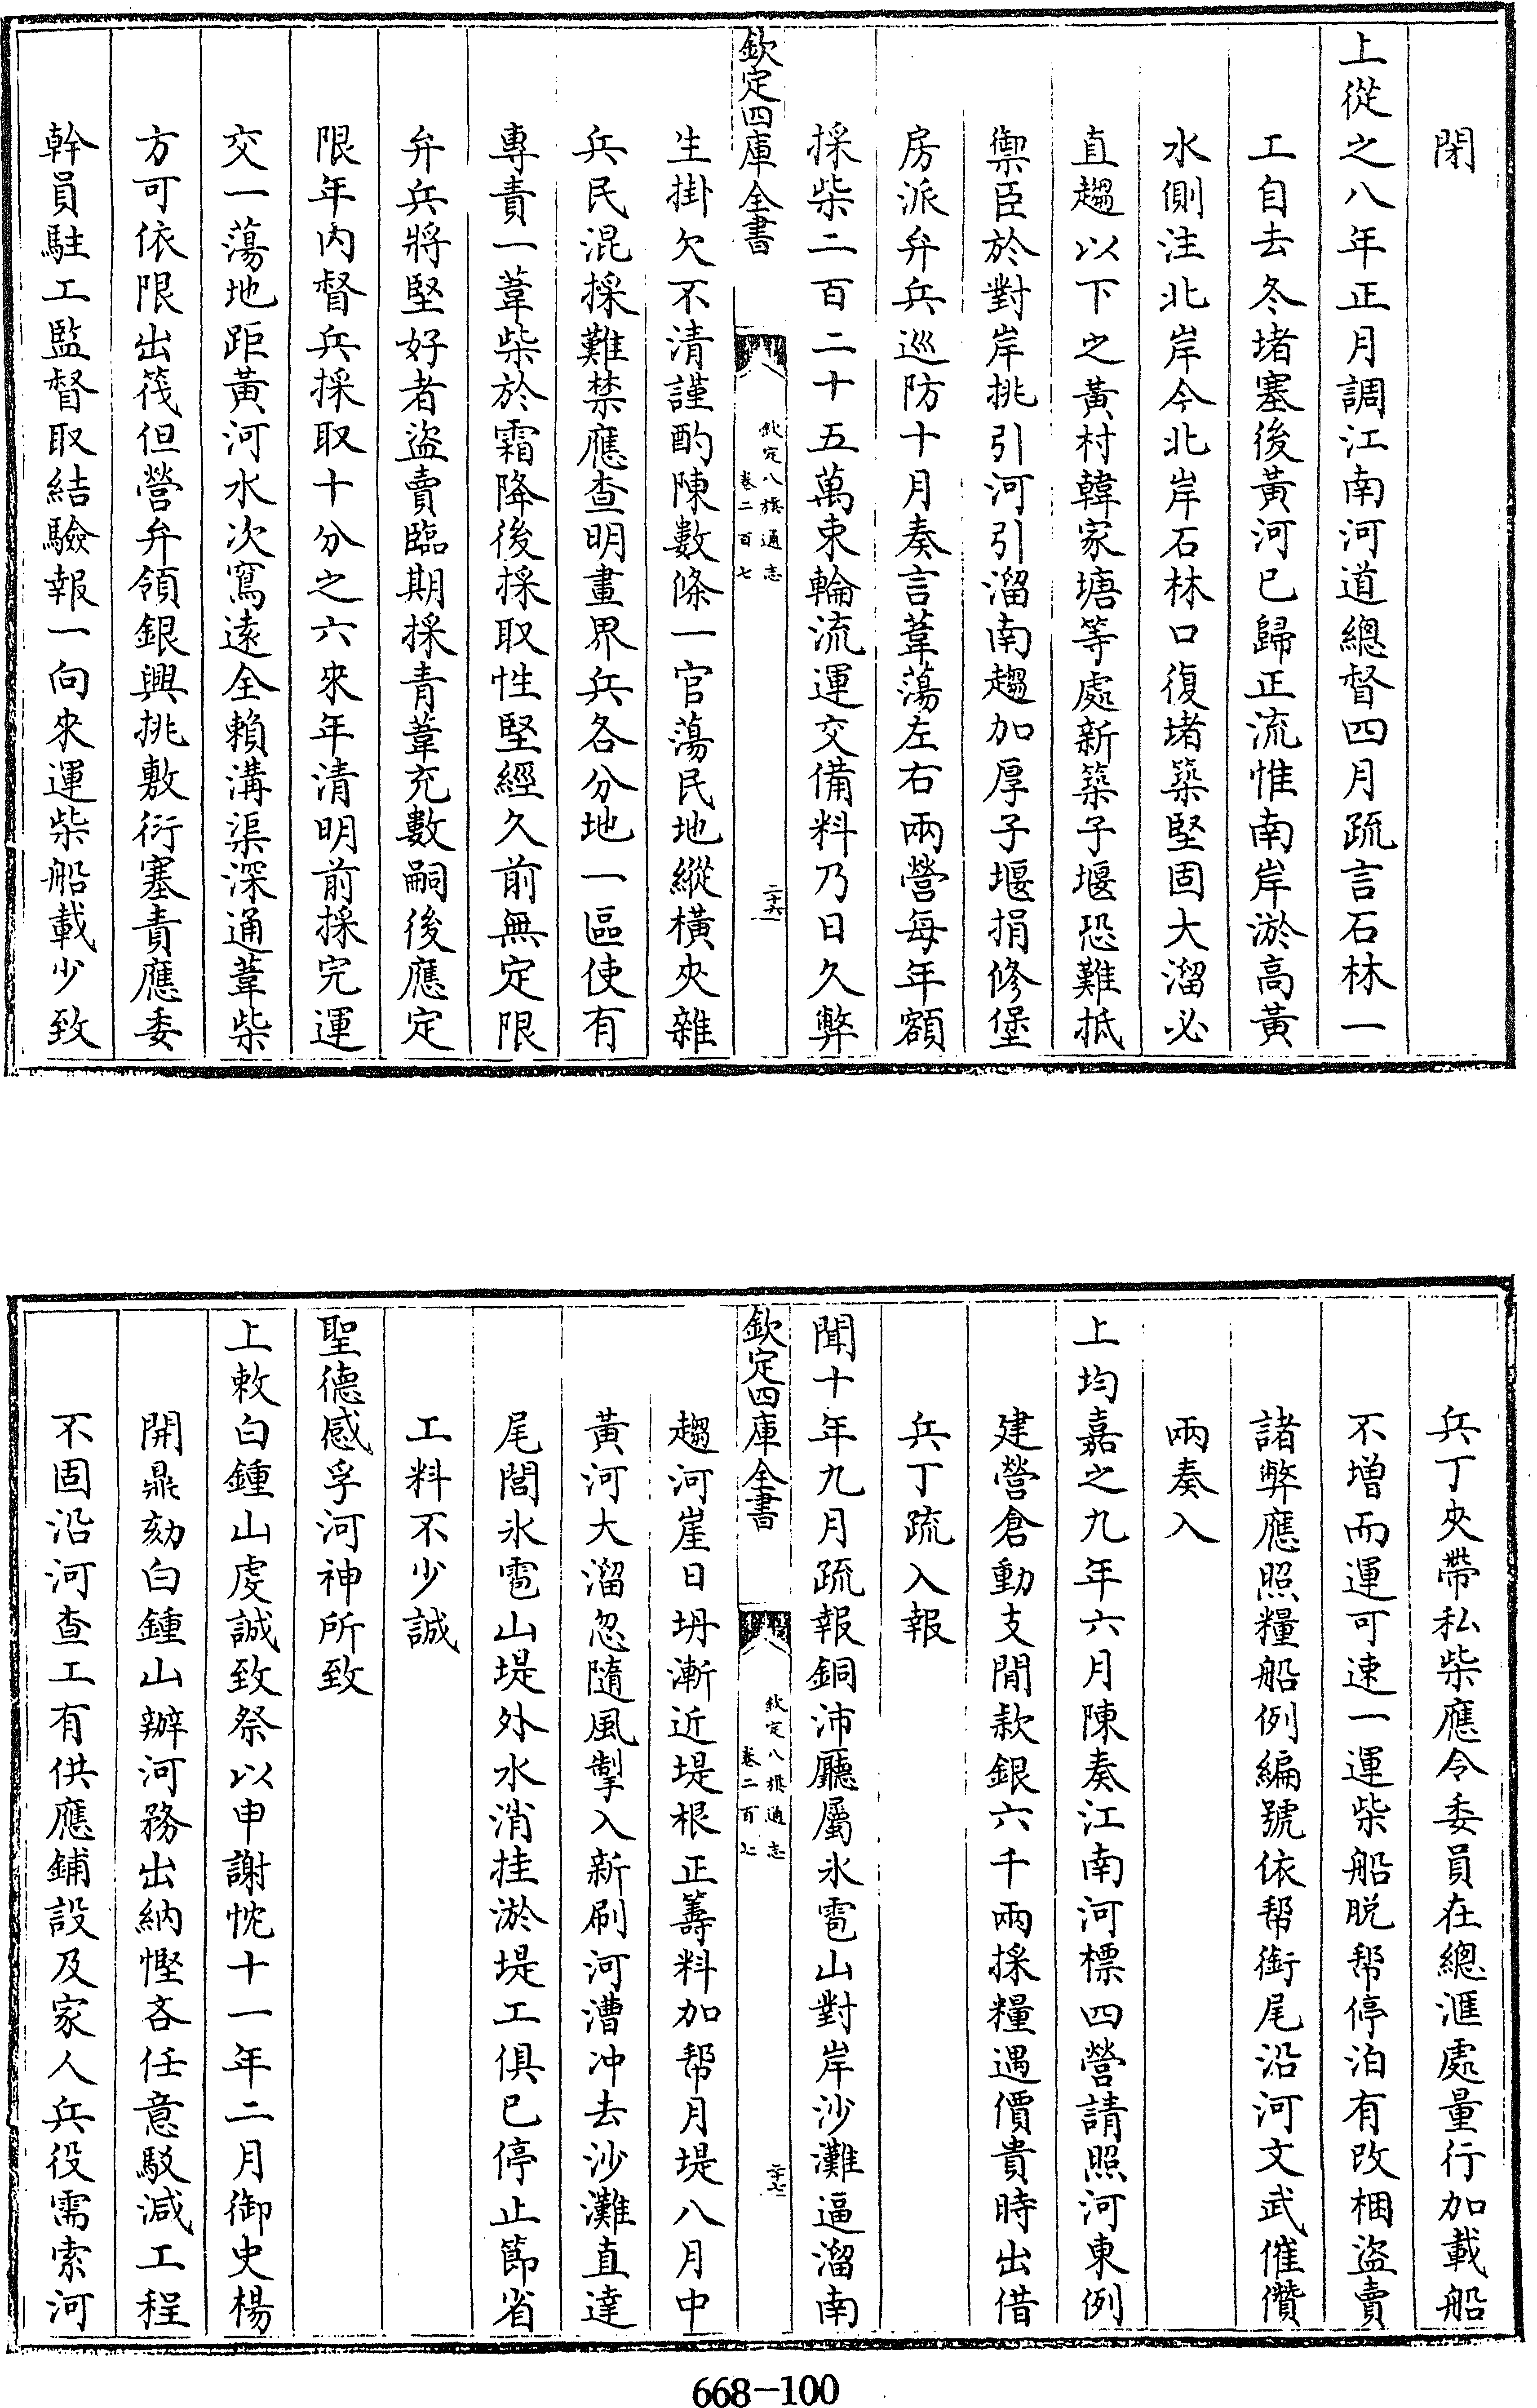 閉
上從之八年正月調江南河道總督四月疏言石林一
工自去冬堵塞後黃河已歸正流惟南岸淤高黃
水側注北岸今北岸石林口復堵築堅固大溜必
直趨以下之黃村韓家塘等處新築子堰恐難抵
禦臣於對岸挑引河引溜南趨加厚子堰捐修堡
房派弁兵巡防十月奏言葦蕩左右兩營每年額
採柴二百二十五萬束輪流運交備料乃日久弊
欽定四庫全書
欽定八旗通志
卷二百七
二十六
生掛欠不清謹酌陳數條一官蕩民地縱橫夾雜
兵民混採難禁應查明畫界兵各分地一區使有
專責一葦柴於霜降後採取性堅經久前無定限
弁兵將堅好者盜賣臨期採青葦充數嗣後應定
限年內督兵採取十分之六來年清明前採完運
交一蕩地距黃河水次寫遠全賴溝渠深通葦柴
方可依限出筏但營弁領銀興挑敷衍塞責應委
幹員駐工監督取結驗報一向來運柴船載少致
兵丁夾帶私柴應令委員在總滙處量行加載船
不增而運可速一運柴船脫帮停泊有改梱盜賣
諸弊應照糧船例編號依帮銜尾沿河文武催儹
兩奏入
上均嘉之九年六月陳奏江南河標四營請照河東例
建營倉動支閒款銀六千兩採糧遇價貴時出借
兵丁疏入報
聞十年九月疏報銅沛廳屬氷雹山對岸沙灘逼溜南
欽定四庫全書
欽定八旗通志
卷二百七
二十七
趨河崖日坍漸近堤根正籌料加帮月堤八月中
黃河大溜忽隨風掣入新刷河漕冲去沙灘直達
尾閭氷雹山堤外水消挂淤堤工俱已停止節省
工料不少誠
聖德感孚河神所致
上敕白鍾山虔誠致祭以申謝忱十一年二月御史楊
開鼎劾白鍾山辦河務出納慳吝任意駁減工程
不固沿河查工有供應鋪設及家人兵役需索河
668-100